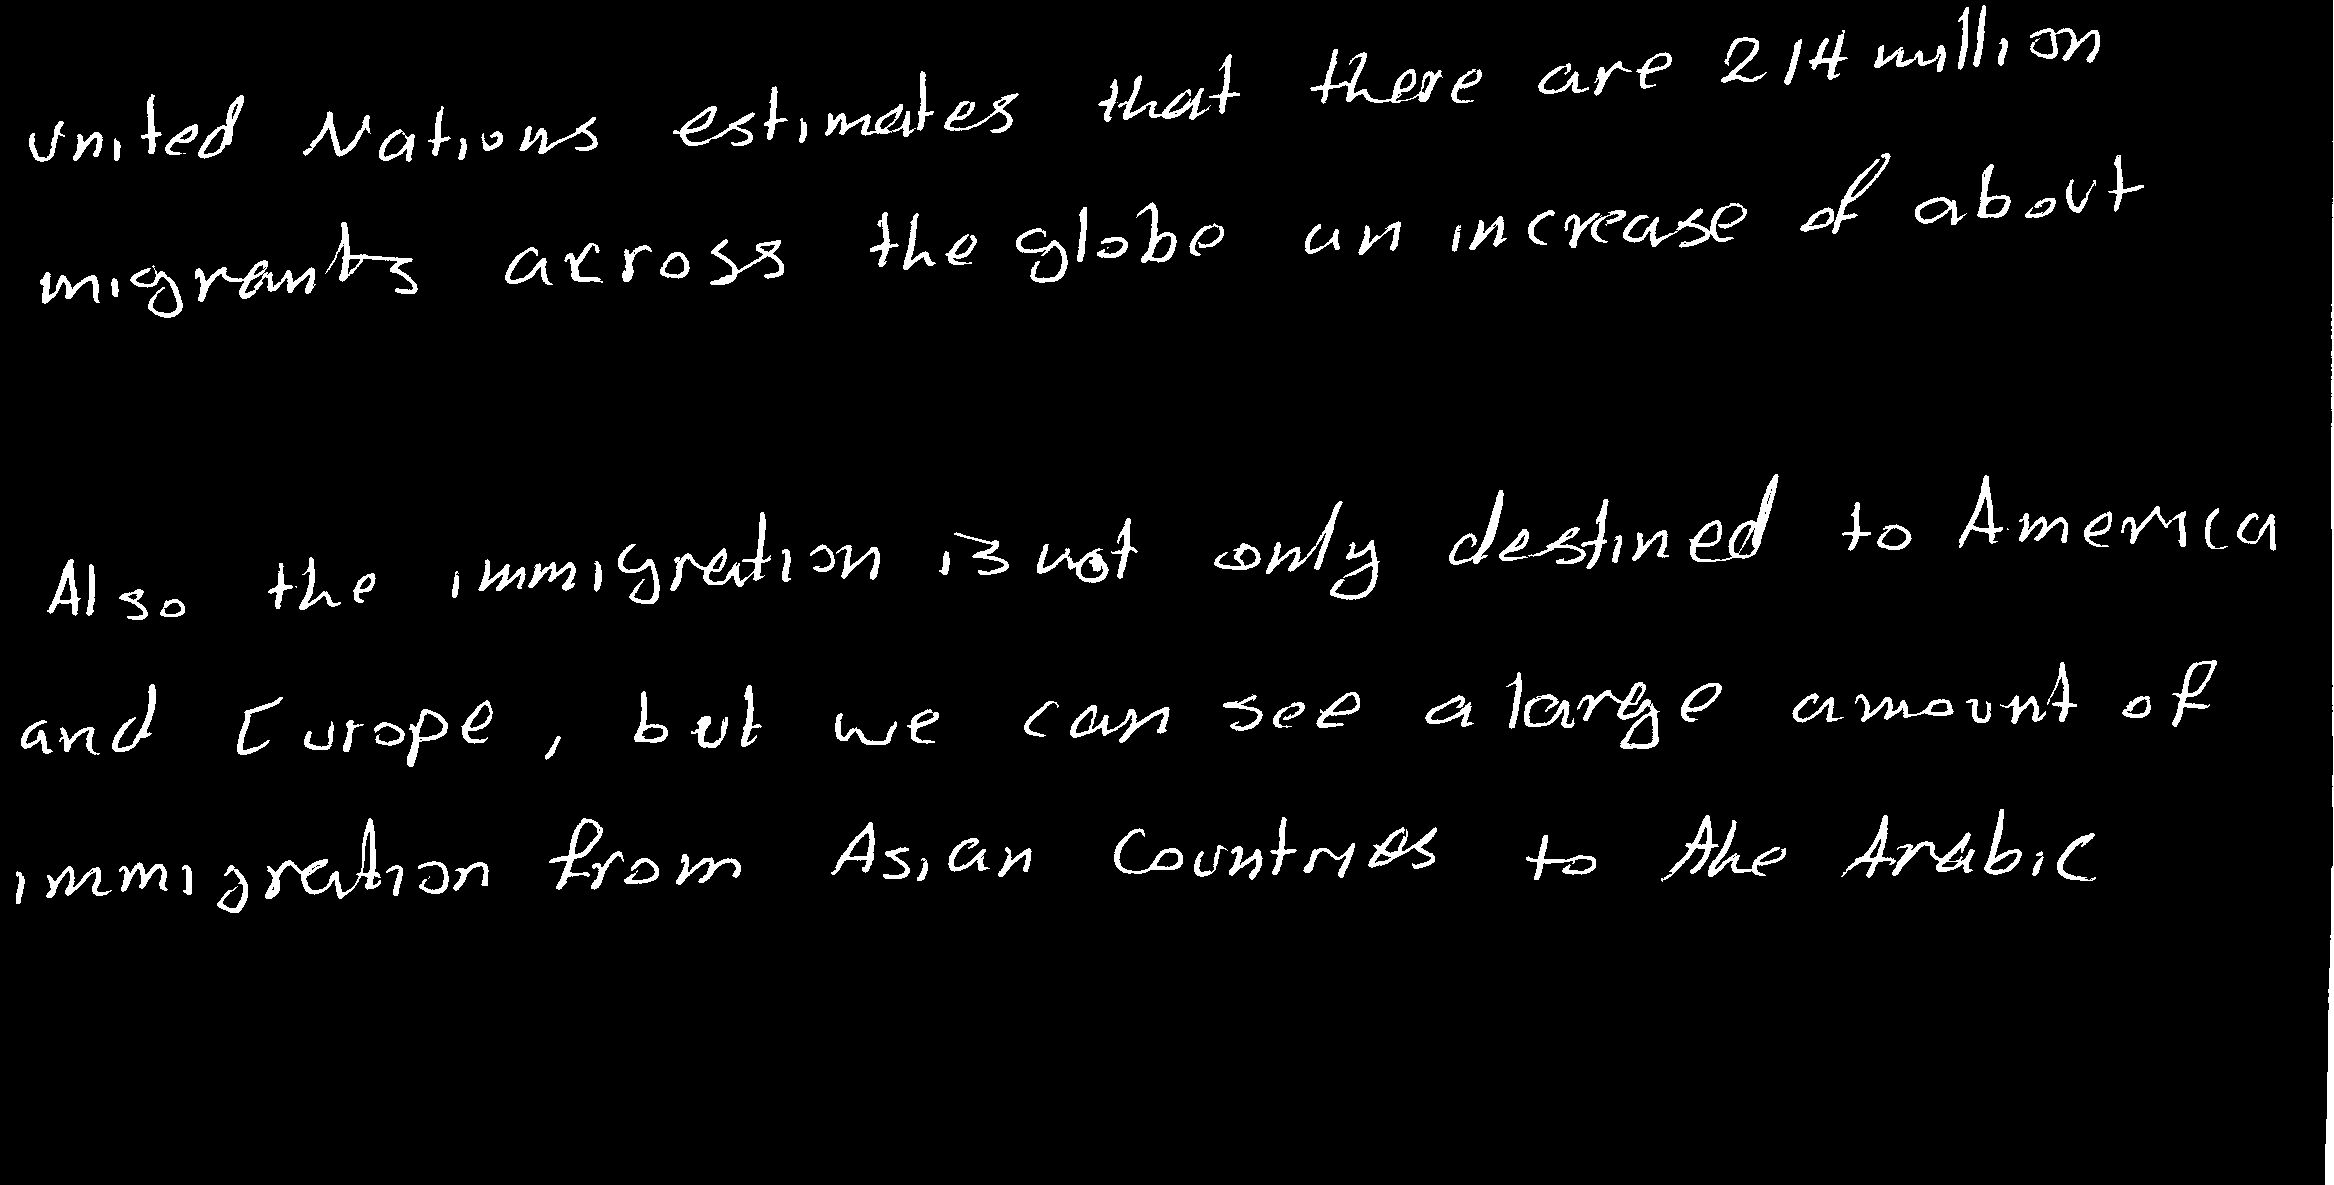 United Nations estimates that there are 214 million
migrants across the globe an increase of about
Also the immigration is not only destined to America
and Europe, but we can see a large amount of
immigration from Asian Countries to the Arabic